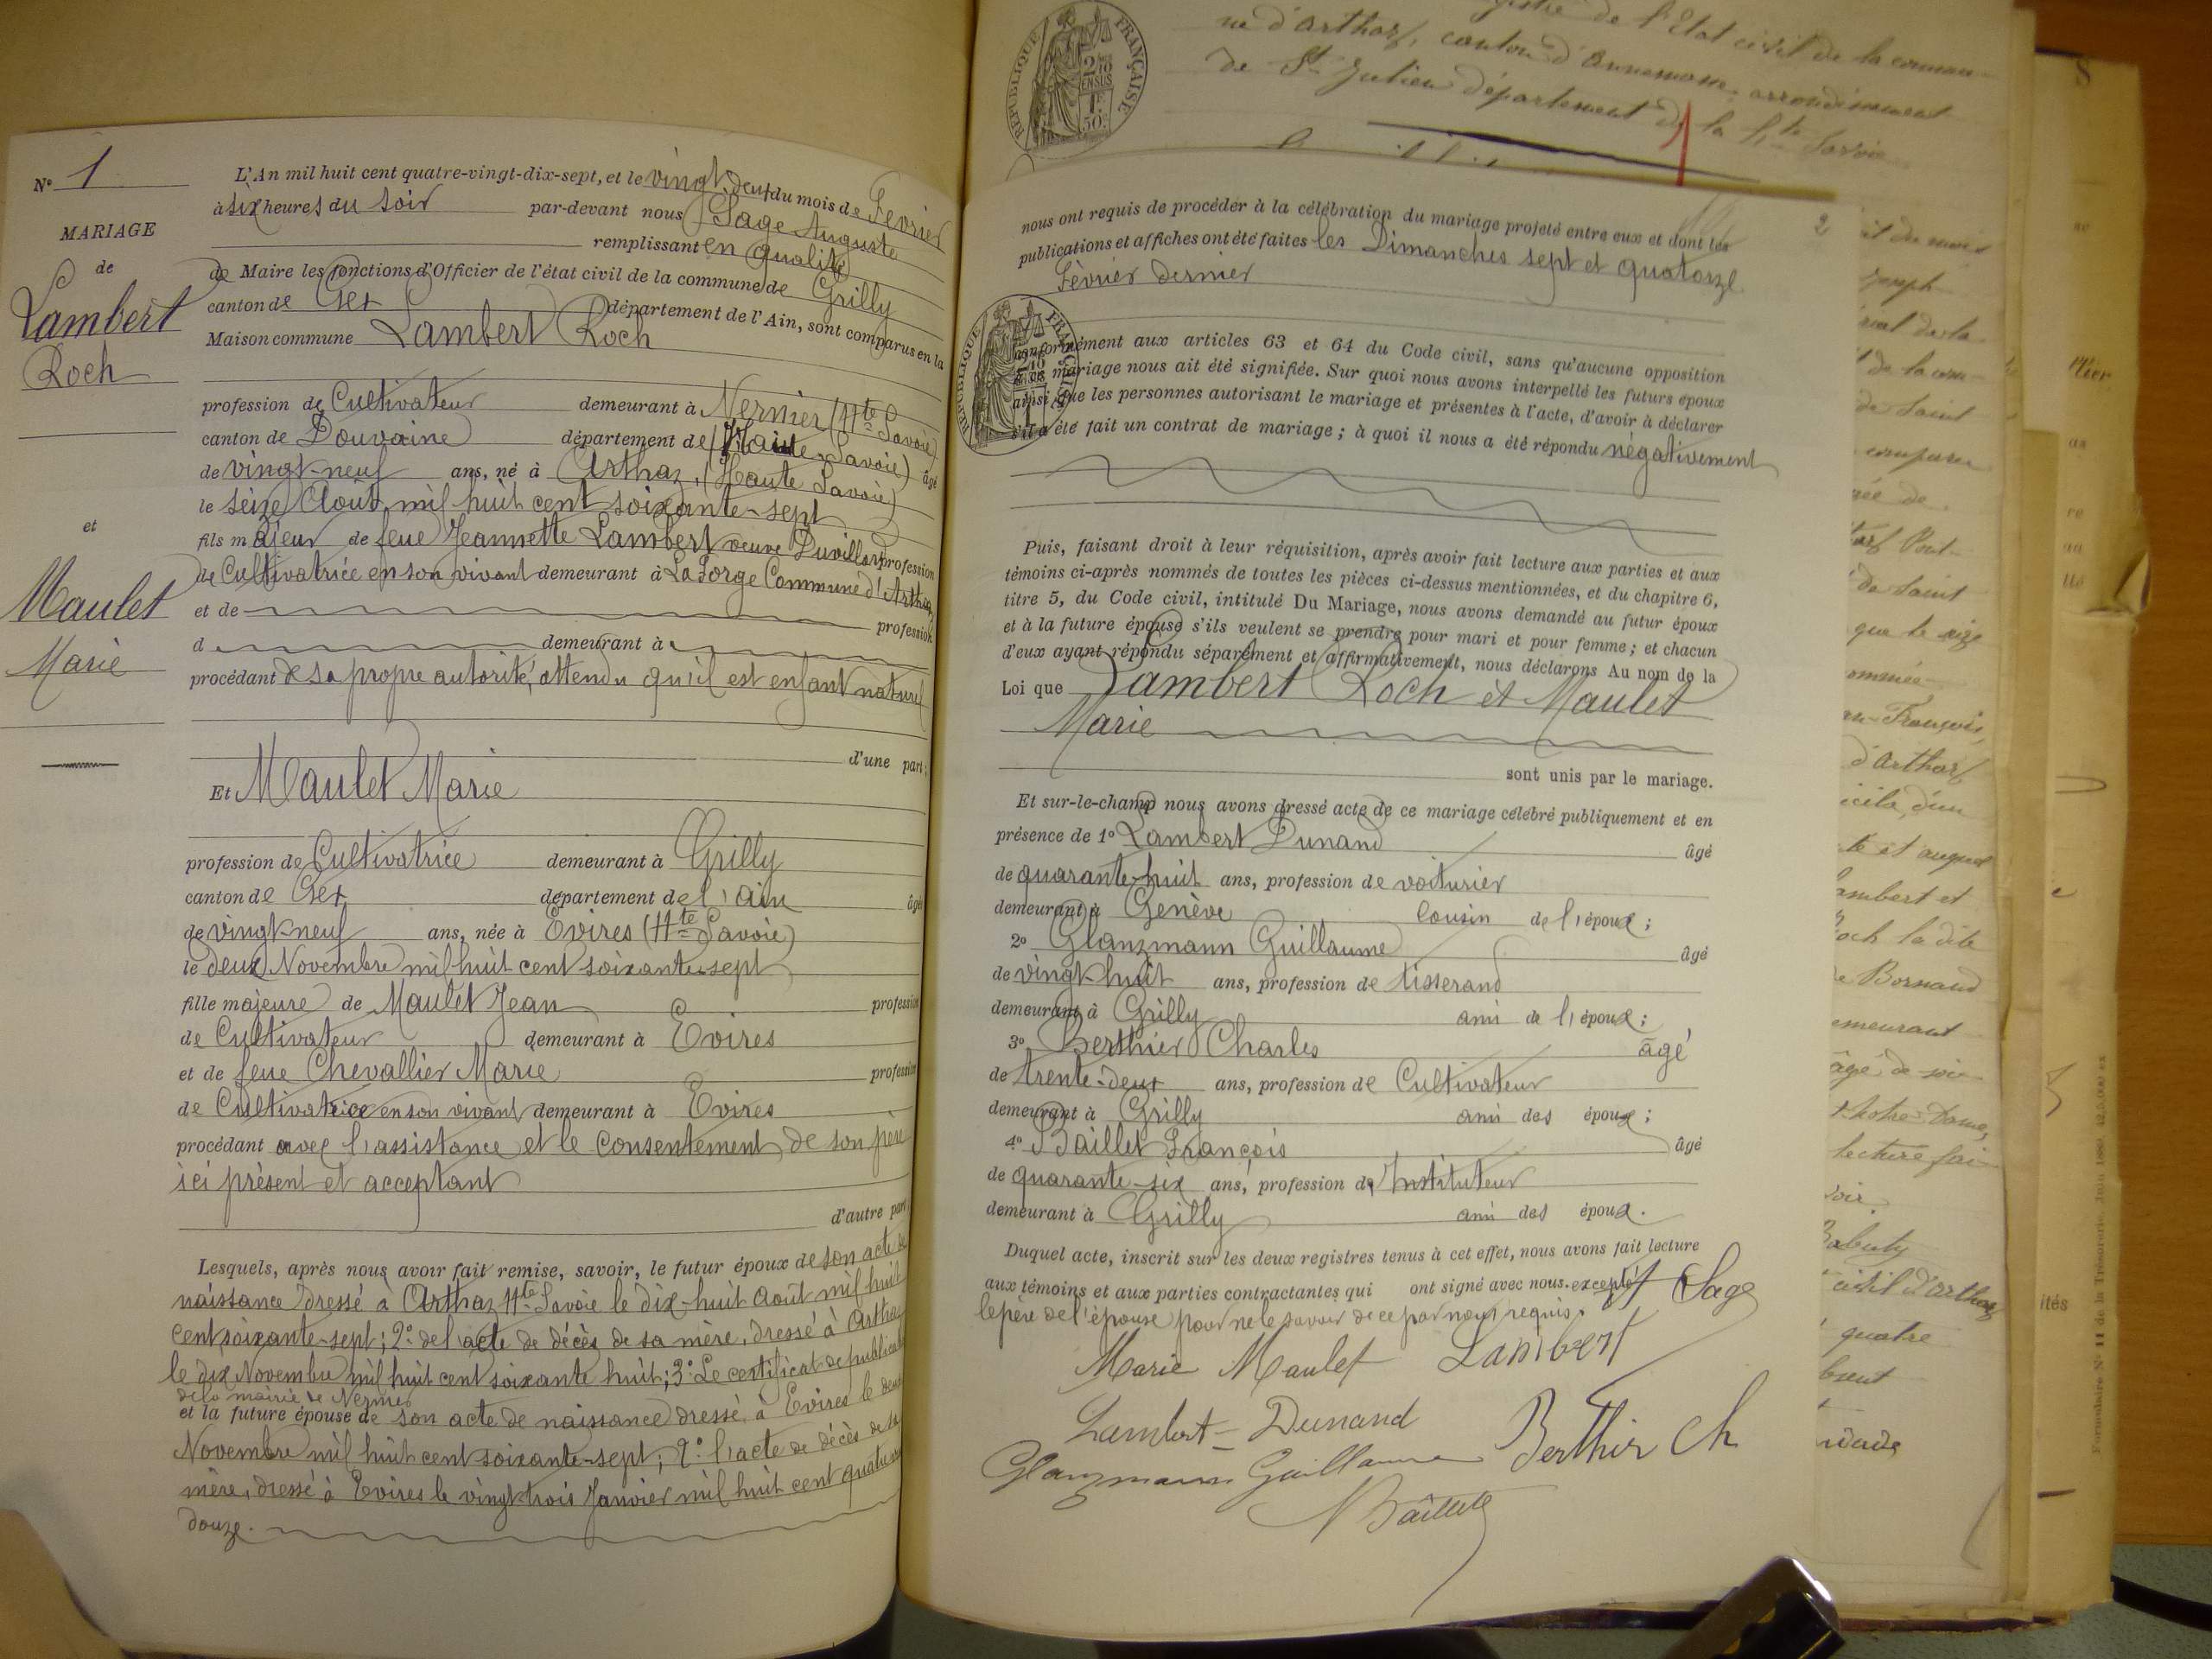 N° 1
MARIAGE
de
Lambert
Roch
et
Maulet
Marie
L'An mil huit cent quatre-vingt-dix-sept, et le vingt deux du mois de Fevrier
à six heures du soir par-devant nous Sage Auguste
remplissant en qualité
de Maire les fonctions d'Officier de l'état civil de la commune de Grilly
canton de Gex département de l'Ain, sont comparus en la
Maison commune Lambert Roch
profession de Cultivateur demeurant à Nernier (Hte Savoie)
canton de Douvaine département de (Haute Savoie) âgé
de vingt-neuf ans, né à Arthaz, (Haute Savoie)
le seize Août mil huit cent soixante-sept
fils majeur de feue Jeannette Lambert veuve Duvillard profession
de Cultivatrice en son vivant demeurant à La Forge Commune d'Arthaz
et de profession
d demeurant à
procédant de sa propre autorité, attendu qu'il est enfant naturel
d'une part;
Et Maulet Marie
profession de Cultivatrice demeurant à Grilly
canton de Gex département de l'ain âgée
de vingt-neuf ans, née à Evires (Hte Savoie)
le deux Novembre mil huit cent soixante-sept
fille majeure de Maulet Jean profession
de Cultivateur demeurant à Evires
et de feue Chevallier Marie profession
de Cultivatrice en son vivant demeurant à Evires
procédant avec l'assistance et le consentement de son père
ici présent et acceptant
d'autre part
Lesquels, après nous avoir fait remise, savoir, le futur époux de son acte de
naissance dressé à Arthaz Hte Savoie le dix-huit août mil huit
cent soixante-sept; 2° de l'acte de décès de sa mère, dressé à Arthaz
le dix Novembre mil huit cent soixante huit; 3° Le certificat de publication
de la mairie de Nernier
et la future épouse de son acte de naissance dressé à Evires le deux
Novembre mil huit cent soixante-sept; 2° l'acte de décès de sa
mère, dressé à Evires le vingt-trois Janvier mil huit cent quatre-vingt
douze.
RÉPUBLIQUE FRANÇAISE
2/10 EN SUS
1F 50c
de l'Etat civil de la commu-
ne d'Arthaz, canton d'Annemasse, arrondissement
de St Julien département de la Hte Savoie
2
nous ont requis de procéder à la célébration du mariage projeté entre eux et dont les
publications et affiches ont été faites les Dimanches sept et quatorze
Février dernier
RÉPUBLIQUE FRANÇAISE
conformément aux articles 63 et 64 du Code civil, sans qu'aucune opposition
à ce mariage nous ait été signifiée. Sur quoi nous avons interpellé les futurs époux
ainsi que les personnes autorisant le mariage et présentes à l'acte, d'avoir à déclarer
s'il a été fait un contrat de mariage; à quoi il nous a été répondu négativement
Puis, faisant droit à leur réquisition, après avoir fait lecture aux parties et aux
témoins ci-après nommés de toutes les pièces ci-dessus mentionnées, et du chapitre 6,
titre 5, du Code civil, intitulé Du Mariage, nous avons demandé au futur époux
et à la future épouse s'ils veulent se prendre pour mari et pour femme; et chacun
d'eux ayant répondu séparément et affirmativement, nous déclarons Au nom de la
Loi que Lambert Roch et Maulet
Marie
sont unis par le mariage.
Et sur-le-champ nous avons dressé acte de ce mariage célébré publiquement et en
présence de 1° Lambert Dunand âgé
de quarante-huit ans, profession de voiturier
demeurant à Genève Cousin de l'époux;
2° Glanzmann Guillaume âgé
de vingt-huit ans, profession de tisserand
demeurant à Grilly ami de l'époux;
3° Berthier Charles âgé
de trente-deux ans, profession de Cultivateur
demeurant à Grilly ami des époux;
4° Baillet François âgé
de quarante-six ans, profession de Instituteur
demeurant à Grilly ami des époux.
Duquel acte, inscrit sur les deux registres tenus à cet effet, nous avons fait lecture
aux témoins et aux parties contractantes qui ont signé avec nous. excepté
le père de l'épouse pour ne le savoir de ce par nous requis.
Sage
Marie Maulet Lambert
Lambert-Dunand
Berthier Ch
Glanzmann Guillaume
Baillet
joseph
de la com-
de Saint
comparu
née de
de Saint
que le seize
ommée
an-François,
d'Arthaz
te et auquel
ambert et
Roch la dite
de Bornand
emeurant
âgé de soi-
lecture fai-
soir.
civil d'Arthaz
quatre
Formulaire N° 11 de la Trésorerie. Juin 1889.